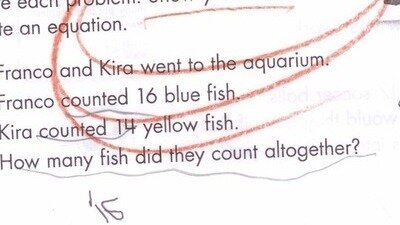 te an equation.
Franco and Kira went to the aquarium.
Franco counted 16 blue fish.
Kira counted 14 yellow fish.
How many fish did they count altogether?